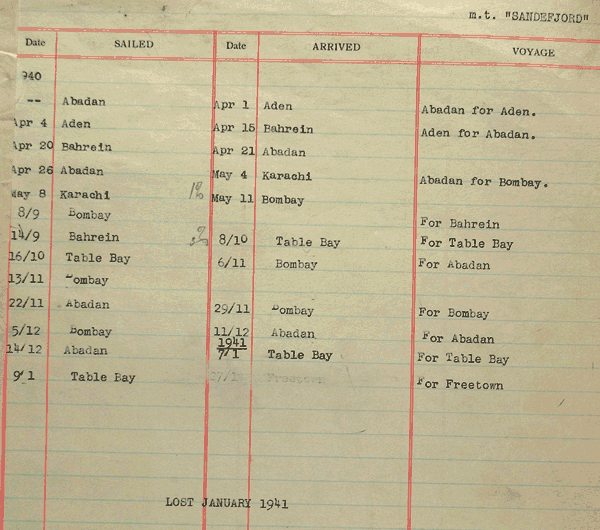 m.t. "SANDEFJORD"
Date SAILED Date ARRIVED VOYAGE
940
-- Abadan Apr 1 Aden Abadan for Aden.
Apr 4 Aden Apr 15 Bahrein Aden for Abadan.
Apr 20 Bahrein Apr 21 Abadan
Apr 26 Abadan May 4 Karachi Abadan for Bombay.
May 8 Karachi May 11 Bombay
8/9 Bombay For Bahrein
14/9 Bahrein 8/10 Table Bay For Table Bay
16/10 Table Bay 6/11 Bombay For Abadan
13/11 Bombay
22/11 Abadan 29/11 Bombay For Bombay
5/12 Bombay 11/12 Abadan For Abadan
1941
14/12 Abadan 7/1 Table Bay For Table Bay
9/1 Table Bay Freetown For Freetown
LOST JANUARY 1941